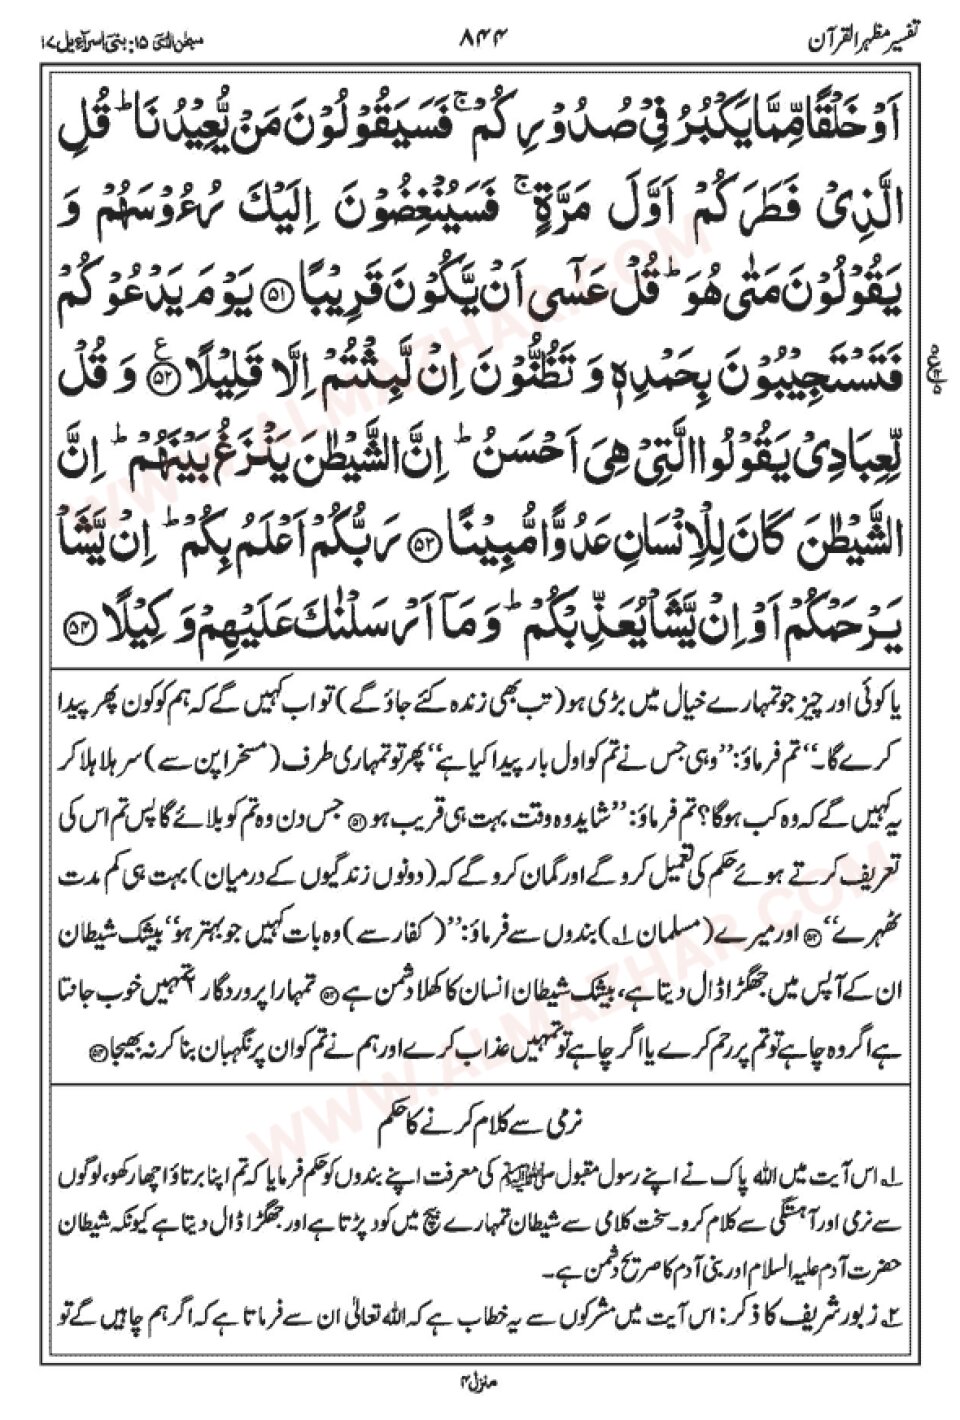 تفسیر مظہر القرآن
۸۴۴
سبحٰن الذی ۱۵: بنی اسرآءیل ۱۷
اَوْ خَلْقًا مِّمَّا یَكْبُرُ فِیْ صُدُوْرِكُمْ ۚ فَسَیَقُوْلُوْنَ مَنْ یُّعِیْدُنَا ؕ قُلِ
الَّذِیْ فَطَرَكُمْ اَوَّلَ مَرَّةٍ ۚ فَسَیُنْغِضُوْنَ اِلَیْكَ رُءُوْسَهُمْ وَ
یَقُوْلُوْنَ مَتٰی هُوَ ؕ قُلْ عَسٰۤی اَنْ یَّكُوْنَ قَرِیْبًا ﴿۵۱﴾ یَوْمَ یَدْعُوْكُمْ
فَتَسْتَجِیْبُوْنَ بِحَمْدِهٖ وَ تَظُنُّوْنَ اِنْ لَّبِثْتُمْ اِلَّا قَلِیْلًا ﴿۵۲﴾ ع وَ قُلْ
لِّعِبَادِیْ یَقُوْلُوا الَّتِیْ هِیَ اَحْسَنُ ؕ اِنَّ الشَّیْطٰنَ یَنْزَغُ بَیْنَهُمْ ؕ اِنَّ
الشَّیْطٰنَ كَانَ لِلْاِنْسَانِ عَدُوًّا مُّبِیْنًا ﴿۵۳﴾ رَبُّكُمْ اَعْلَمُ بِكُمْ ؕ اِنْ یَّشَاْ
یَرْحَمْكُمْ اَوْ اِنْ یَّشَاْ یُعَذِّبْكُمْ ؕ وَ مَاۤ اَرْسَلْنٰكَ عَلَیْهِمْ وَكِیْلًا ﴿۵۴﴾
یا کوئی اور چیز جو تمہارے خیال میں بڑی ہو (تب بھی زندہ کئے جاؤ گے) تو اب کہیں گے کہ ہم کو کون پھر پیدا
کرے گا۔‘‘ تم فرماؤ: ’’وہی جس نے تم کو اول بار پیدا کیا ہے‘‘ پھر تو تمہاری طرف (مسخراپن سے) سر ہلا ہلا کر
یہ کہیں گے کہ وہ کب ہوگا؟ تم فرماؤ: ’’شاید وہ وقت بہت ہی قریب ہو ﴿۵۱﴾ جس دن وہ تم کو بلائے گا پس تم اس کی
تعریف کرتے ہوئے حکم کی تعمیل کرو گے اور گمان کرو گے کہ (دونوں زندگیوں کے درمیان) بہت ہی کم مدت
ٹھہرے‘‘ ﴿۵۲﴾ اور میرے (مسلمان ۱؎) بندوں سے فرماؤ: ’’(کفار سے) وہ بات کہیں جو بہتر ہو‘‘ بیشک شیطان
ان کے آپس میں جھگڑا ڈال دیتا ہے، بیشک شیطان انسان کا کھلا دشمن ہے ﴿۵۳﴾ تمہارا پروردگار ۲؎ تمہیں خوب جانتا
ہے اگر وہ چاہے تو تم پر رحم کرے یا اگر چاہے تو تمہیں عذاب کرے اور ہم نے تم کو ان پر نگہبان بنا کر نہ بھیجا ﴿۵۴﴾
نرمی سے کلام کرنے کا حکم
۱؎ اس آیت میں اللہ پاک نے اپنے رسول مقبول ﷺ کی معرفت اپنے بندوں کو حکم فرمایا کہ تم اپنا برتاؤ اچھا رکھو، لوگوں
سے نرمی اور آہستگی سے کلام کرو۔ سخت کلامی سے شیطان تمہارے بیچ میں کود پڑتا ہے اور جھگڑا ڈال دیتا ہے کیونکہ شیطان
حضرت آدم علیہ السلام اور بنی آدم کا صریح دشمن ہے۔
۲؎ زبور شریف کا ذکر: اس آیت میں مشرکوں سے یہ خطاب ہے کہ اللہ تعالیٰ ان سے فرماتا ہے کہ اگر ہم چاہیں گے تو
منزل ۴
WWW.ALMAZHAR.COM
WWW.ALMAZHAR.COM